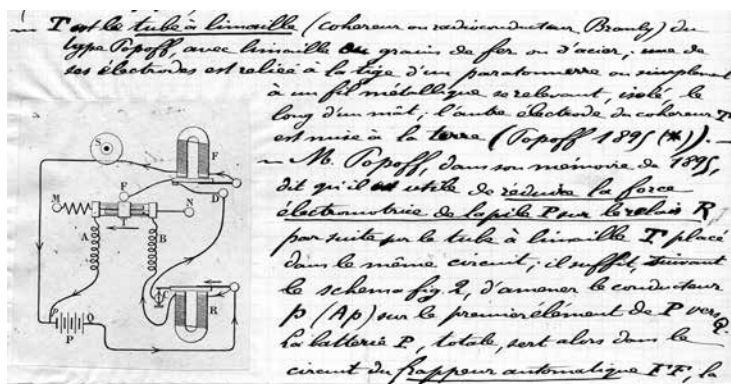 — T est le tube à limaille (cohereur ou radioconducteur Branly) du
type Popoff, avec limaille ou grains de fer ou d'acier, une de
ses électrodes est reliée à la tige d'un paratonnerre ou simplement
à un fil métallique se relevant, isolé le
long d'un mât; l'autre électrode du cohereur T
est mise à la terre (Popoff 1895 (*)). —
— M. Popoff, dans son mémoire de 1895,
dit qu'il est utile de réduire la force
électromotrice de la pile P sur le relais R
par suite sur le tube à limaille T placé
dans le même circuit; il suffit, suivant
le schema fig. 2, d'amener le conducteur
p (Ap) sur le premier élément de P vers Q.
La batterie P, totale, sert alors dans le
circuit du frappeur automatique FF la
S
F
F
D
M
N
A
B
R
p
Q
P